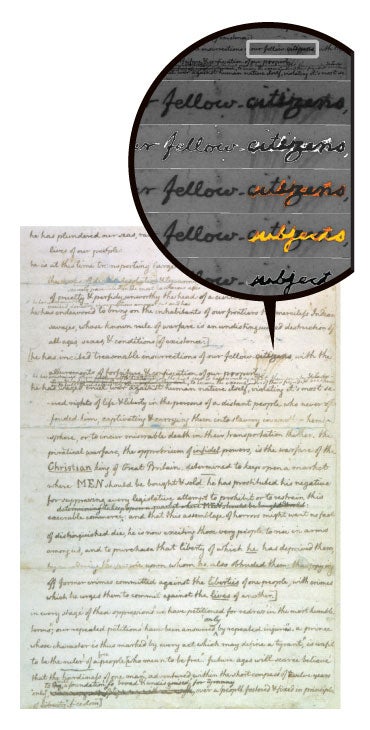 our fellow citizens,
fellow citizens,
er fellow citizens,
fellow citizens,
fellow subjects
subject
he has plundered our seas,
lives of our people:
he is at this time
of cruelty & perfidy unworthy the head of a
he has endeavored to bring on the inhabitants of our frontiers the merciless Indian
savages, whose known rule of warfare is an undistinguished destruction of
all ages, sexes, & conditions of existence:]
[he has incited treasonable insurrections of our fellow citizens, with the
allurements of forfeiture & confiscation of our property:
he has waged cruel war against human nature itself, violating it's most sa-
cred rights of life & liberty in the persons of a distant people who never of-
fended him, captivating & carrying them into slavery in another hemi-
sphere, or to incur miserable death in their transportation thither. this
piratical warfare, the opprobrium of infidel powers, is the warfare of the
Christian king of Great Britain. determined to keep open a market
where MEN should be bought & sold, he has prostituted his negative
for suppressing every legislative attempt to prohibit or to restrain this
determining to keep open a market where MEN should be bought & sold
execrable commerce: and that this assemblage of horrors might want no fact
of distinguished die, he is now exciting those very people to rise in arms
among us, and to purchase that liberty of which he has deprived them,
by murdering the people upon whom he also obtruded them; thus paying
off former crimes committed against the liberties of one people, with crimes
which he urges them to commit against the lives of another.]
in every stage of these oppressions we have petitioned for redress in the most humble
only
terms; our repeated petitions have been answered by repeated injuries. a prince
whose character is thus marked by every act which may define a tyrant, is unfit
to be the ruler of a people who mean to be free. future ages will scarce believe
that the hardiness of one man, adventured within the short compass of twelve years
only, over a people fostered & fixed in principles
of freedom]